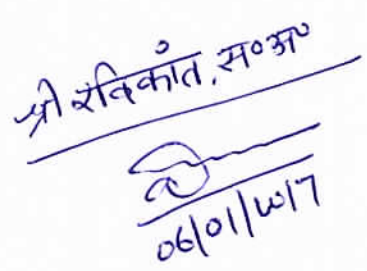 श्री रविकांत, स०अ०
06/01/2017